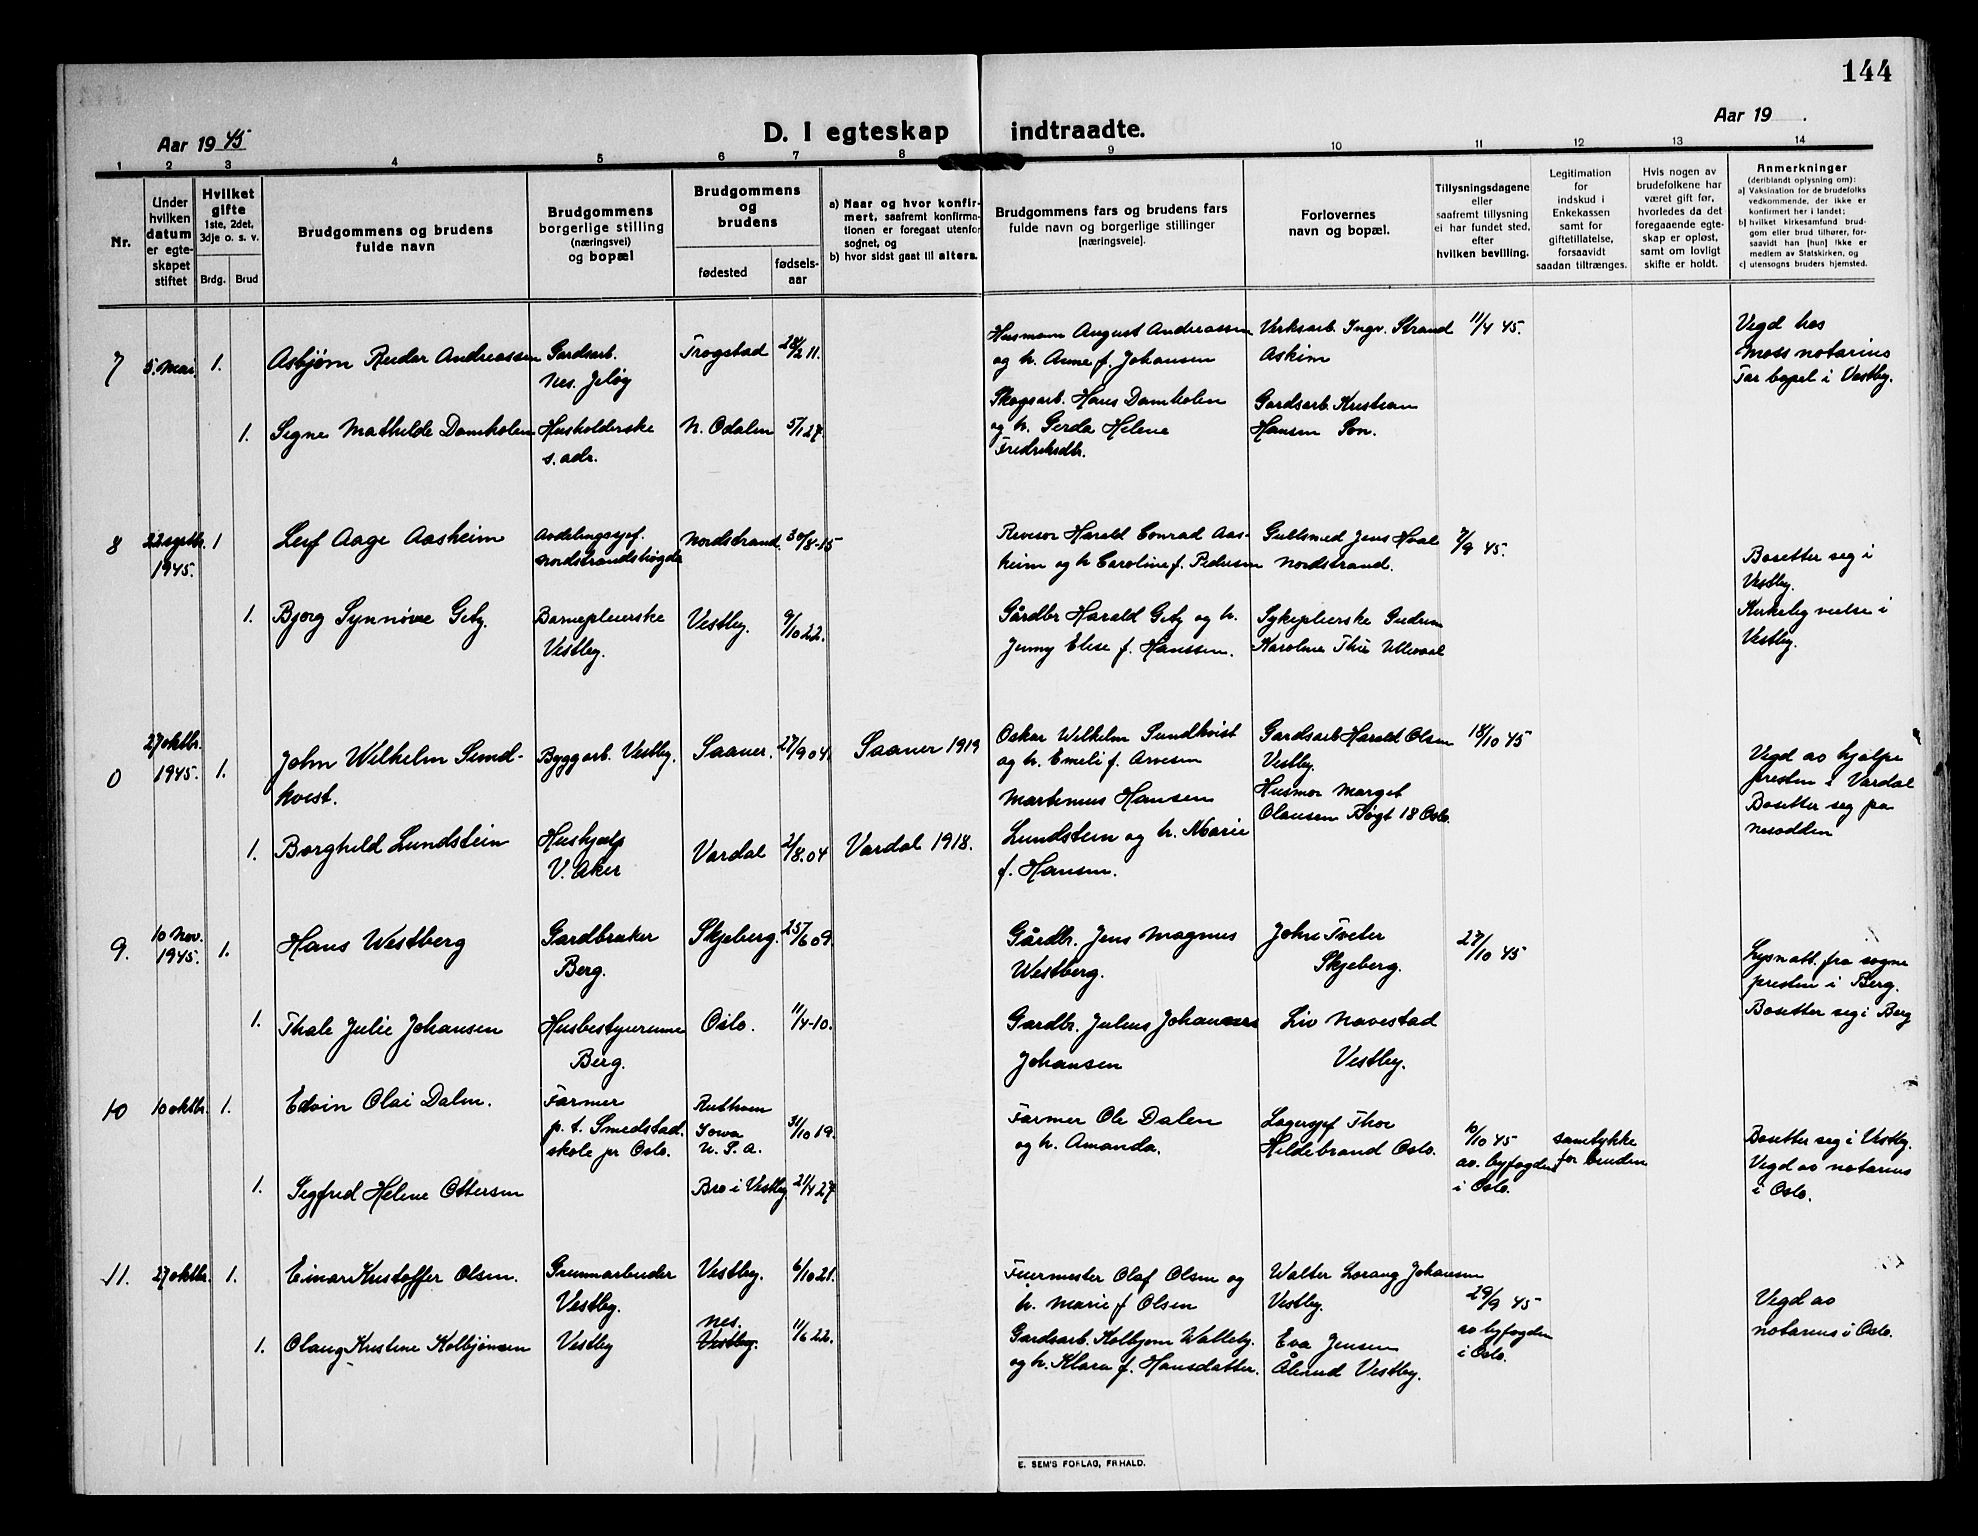 144
Aar 1945
D. I egteskap indtraadte.
Aar 19 .
1 2 3 4 5 6 7 8 9 10 11 12 13 14
Nr.
Under
hvilken
datum
er egte-
skapet
stiftet
Hvilket
gifte
1ste, 2det,
3dje o. s. v.
Brdg. Brud
Brudgommens og brudens
fulde navn
Brudgommens
borgerlige stilling
(næringsvei)
og bopæl
Brudgommens
og
brudens
fødested
fødsels-
aar
a) Naar og hvor konfir-
mert, saafremt konfirma-
tionen er foregaat utenfor
sognet, og
b) hvor sidst gaat til alters.
Brudgommens fars og brudens fars
fulde navn og borgerlige stillinger
(næringsveie).
Forlovernes
navn og bopæl.
Tillysningsdagene
eller
saafremt tillysning
ei har fundet sted,
efter
hvilken bevilling.
Legitimation
for
indskud i
Enkekassen
samt for
giftetillatelse,
forsaavidt
saadan tiltrænges.
Hvis nogen av
brudefolkene har
været gift før,
hvorledes da det
foregaaende egte-
skap er opløst,
samt om lovligt
skifte er holdt.
Anmerkninger
(deriblandt oplysning om):
a) Vaksination for de brudefolks
vedkommende, der ikke er
konfirmert her i landet;
b) hvilket kirkesamfund brud-
gom eller brud tilhører, for-
saavidt han [hun] ikke er
medlem av Statskirken, og
c) utensogns bruders hjemsted.
7 5. mai 1. Asbjørn Reidar Andreassen
Gardsarb.
Nes. Jeløy
Trøgstad 28/2 11.
Husmann August Andreassen
og h. Anne f. Johansen
Verksarb. Ingv. Strand
Askim
11/4 45.
Vegd hos
Moss notarius
Tar bopel i Vestby.
1. Signe Mathilde Damholen
Husholderske
s. adr.
N. Odalen 5/1 27.
Skogsarb. Hans Damholen
og h. Gerda Helene
Fredriksdtr.
Gardsarb. Kristian
Hansen Son.
8 22 septbr. 1945. 1 Leif Aage Aasheim
Avdelingssjef.
Nordstrandshøgda
Nordstrand. 30/8-15
Revisor Harald Conrad Aas-
heim og h Caroline f. Pedersen
Gullsmed Jens Hval
Nordstrand.
7/9 45.
Bosetter seg i
Vestby.
Kirkelig vielse i
Vestby.
1. Bjørg Synnøve Getz.
Barnepleierske
Vestby.
Vestby. 9/10 22.
Gårdbr Harald Getz og h.
Jenny Elise f. Hanssen.
Sykepleierske Gudrun
Karoline Thiis Ullevaal
0 27 oktbr. 1945. 1. John Wilhelm Sund-
kvist.
Byggarb. Vestby. Saaner. 27/9 04. Saaner 1919
Oskar Wilhelm Sundkvist
og h. Emeli f. Arvesen
Gardsarb Harald Olsen
Vestby.
18/10 45
Vegd av hjelpe
presten i Vardal
Bosetter seg pa
Nesodden
1. Borghild Lundstein
Hushjelp
V. Aker
Vardal 2/8.04 Vardal 1918.
Martinius Hansen
Lundstein og h. Marie
f. Hansen.
Husmor Marget
Olausen Bøigt 18 Oslo.
9. 10 nov. 1945. 1. Hans Westberg
Gardbruker
Berg.
Skjeberg. 25/6 09.
Gårdbr. Jens Magnus
Westberg.
John Tveter
Skjeberg.
27/10 45
Lysn att. fra sogne
presten i Berg.
Bosetter seg i Berg
1. Thale Julie Johansen
Husbestyrerinne
Berg.
Oslo. 11/4-10.
Gardbr. Julius Johannes
Johansen
Liv Navestad
Vestby.
10 10 oktbr. 1. Edvin Olai Dalen.
Farmer
p. t. Smedstad.
skole pr Oslo.
Ruthven
Iowa
U. S. A.
31/10 19.
Farmer Ole Dalen
og h. Amanda.
Lagersjef Thor
Hildebrand Oslo.
6/10 45
av. byfogden
i Oslo.
samtykke
for bruden
Bosetter seg i Vestby.
Vegd av notarius
i Oslo.
1. Sigfred Helene Ottersen
Bro i Vestby 21/4 27.
11. 27 oktbr. 1. Einar Kristoffer Olsen.
Grunnarbeider
Vestby.
Vestby. 6/10 21.
Fiermester Olaf Olsen og
h. Marie f Olsen
Walter Lorang Johansen
Vestby.
29/9 45
av byfogden
i Oslo.
Vegd av
notarius i Oslo.
1. Olaug Kristine Kolbjørnsen
Vestby
Nes.
Vestby.
11/6 22.
Gardsarb. Kolbjørn Walleby.
og h. Klara f. Hansdatter.
Eva Jensen
Ålerud Vestby.
E. SEM'S FORLAG, FR.HALD.